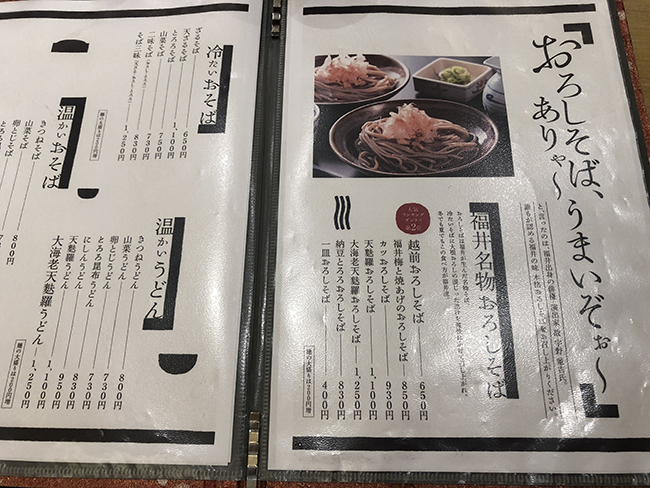 おろしそば、うまいぞぉ〜
ありゃ〜
と、言ったのは、福井出身の俳優・演出家 故 宇野 重吉氏。
誰もが認める福井の味 本格おろしそばをお召し上がりください。
福井名物おろしそば
おろしそばは福井が生んだ名物そば。
冬でも夏でもこの食べ方が福井流。
人気
ランキング
第2位
越前おろしそば 650円
福井梅と焼あげのおろしそば 850円
カツおろしそば 930円
天麩羅おろしそば 1,100円
大海老天麩羅おろしそば 1,250円
納豆とろろおろしそば 830円
一皿おろしそば 400円
麺の大盛りは200円増
冷たいおそば
ざるそば 650円
天ざるそば 1,100円
とろろそば 750円
山菜そば 730円
二味そば 830円
そば三昧 1,250円
麺の大盛りは200円増
温かいおそば
きつねそば 800円
山菜そば
卵とじそば
温かいうどん
きつねうどん 800円
山菜うどん 730円
卵とじうどん 730円
とろろ昆布うどん 730円
にしんうどん 830円
天麩羅うどん 950円
大海老天麩羅うどん 1,100円
1,250円
麺の大盛りは200円増